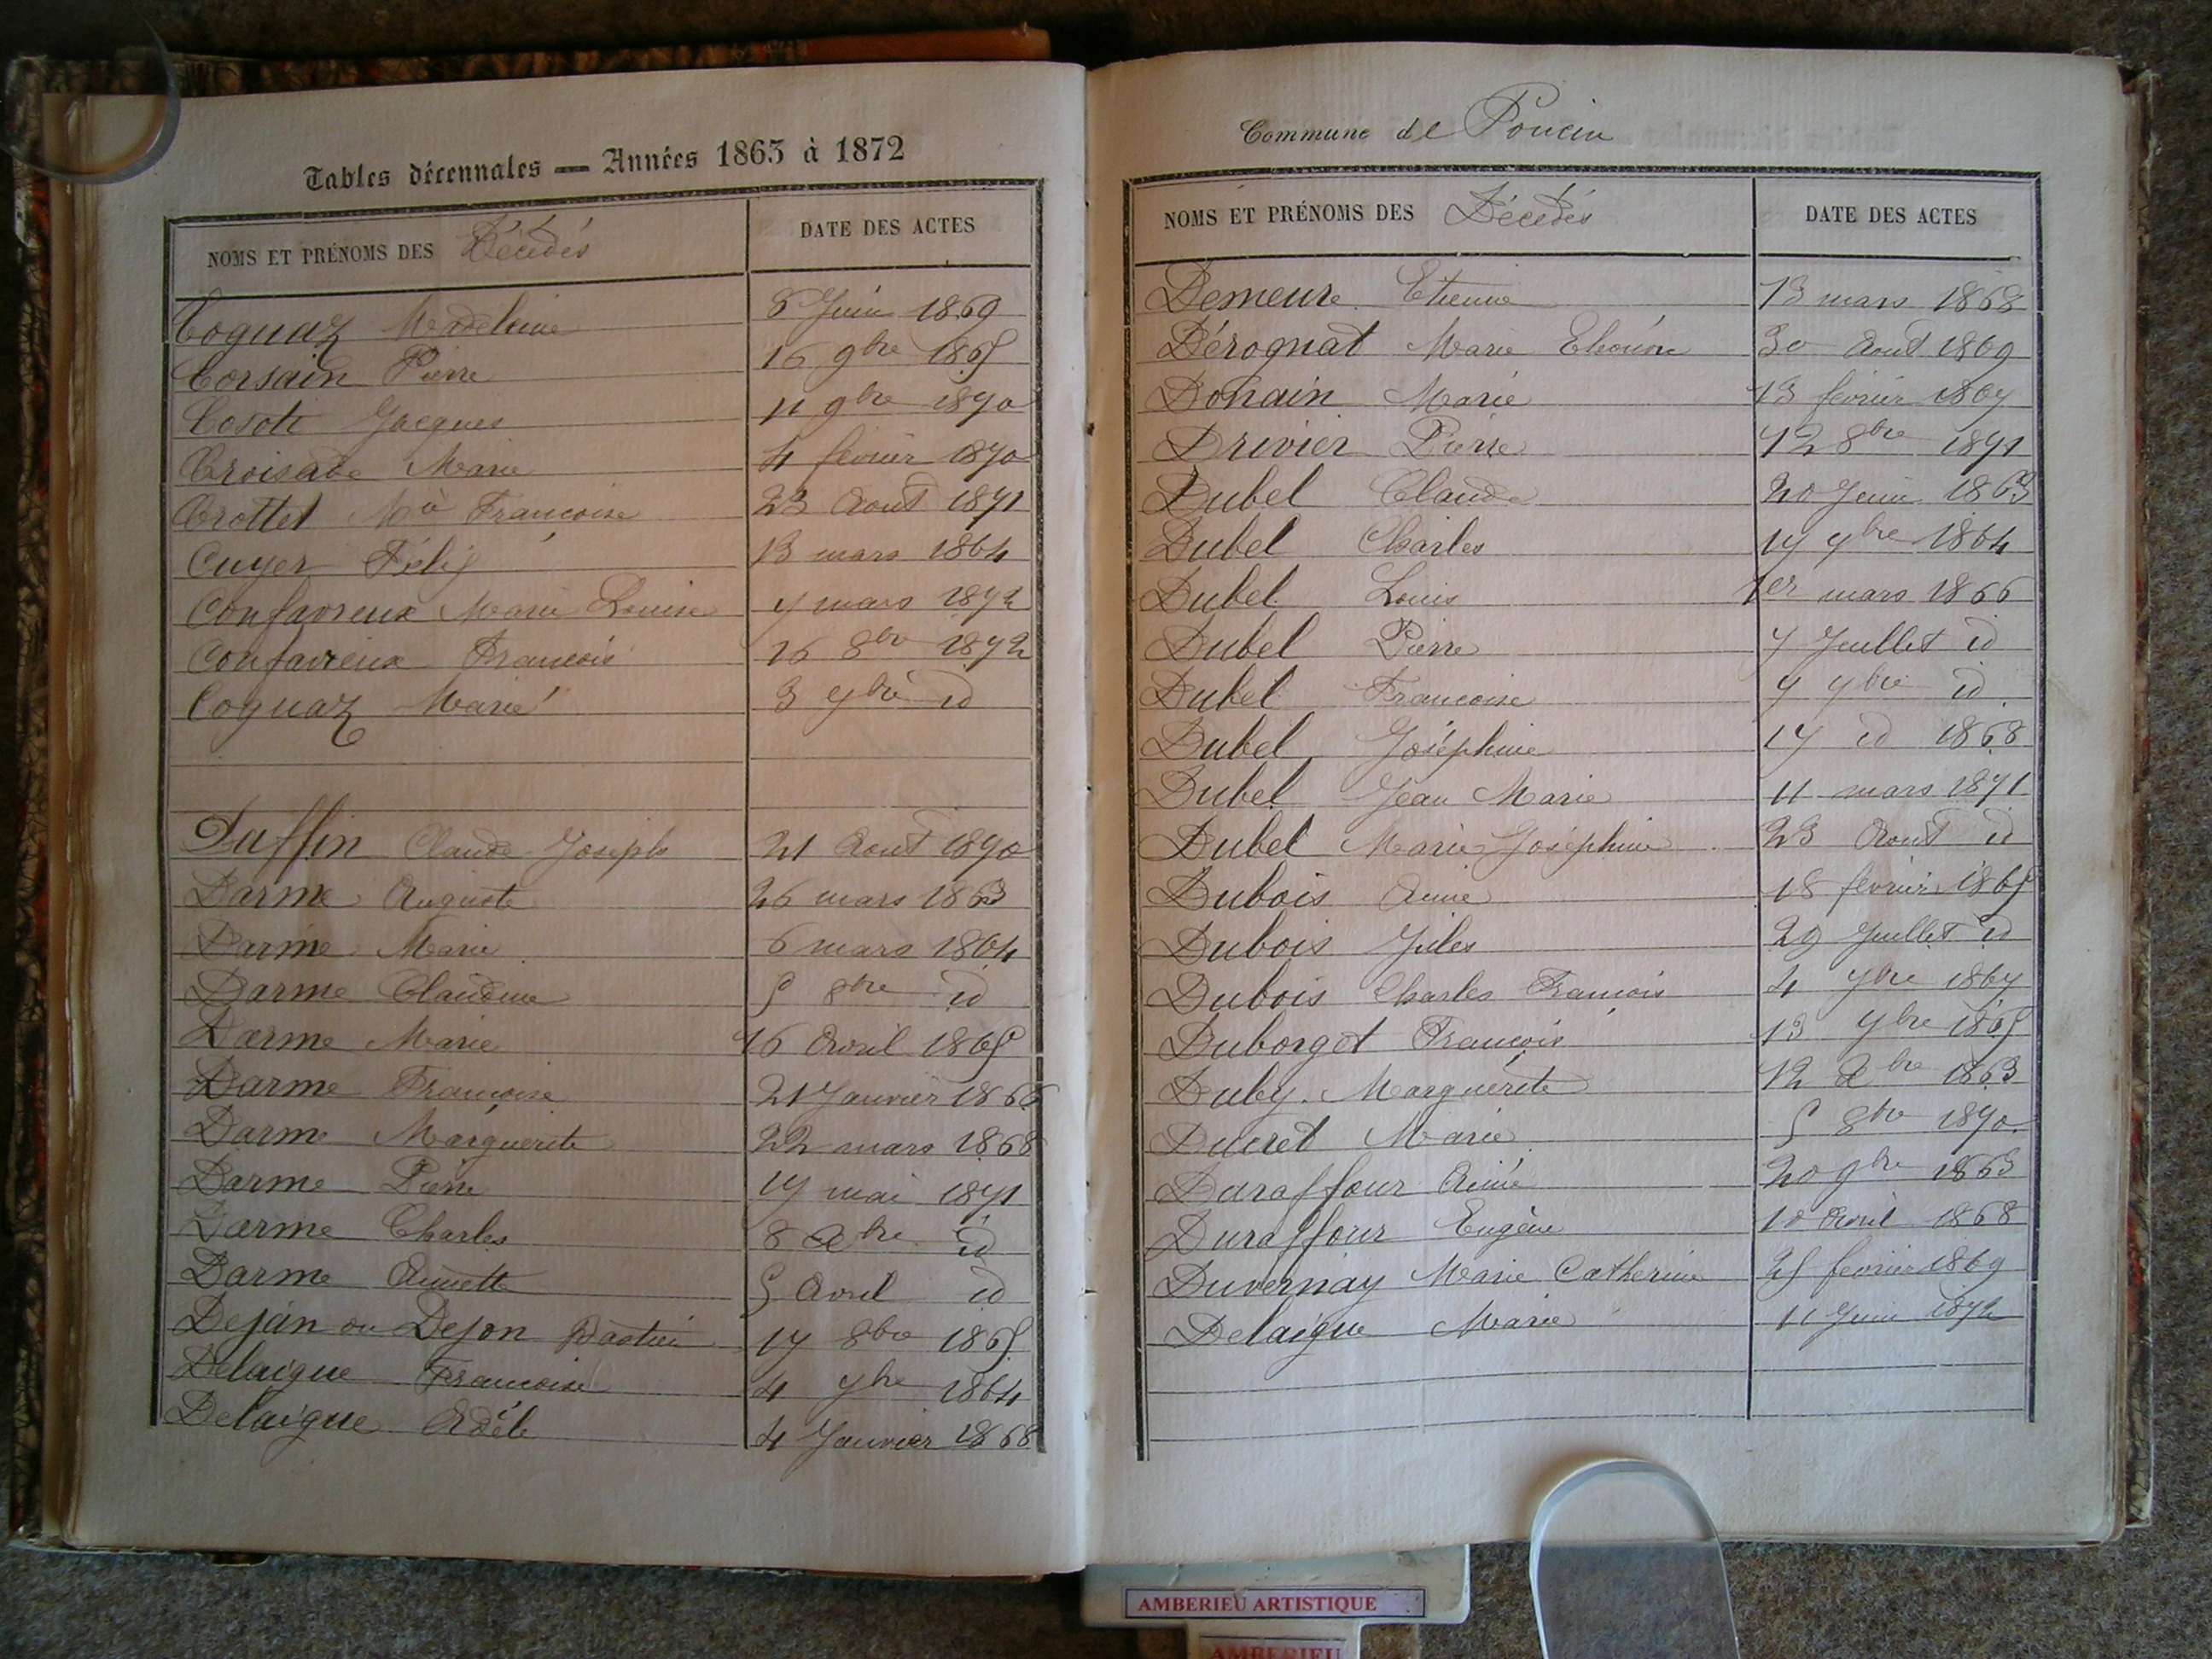 Tables décennales — Années 1863 à 1872
NOMS ET PRÉNOMS DES Décédés DATE DES ACTES
Coguaz Madeleine 8 Juin 1869
Corsain Pierre 16 9bre 1865
Cosote Jacques 11 9bre 1870
Croisade Marie 4 février 1870
Crottet Mie Françoise 23 Aout 1871
Cuyer Félix 13 mars 1864
Confavreux Marie Louise 7 mars 1872
Confavreux François 16 8bre 1872
Coguaz Marie 3 7bre id
Daffin Claude Joseph 21 Aout 1870
Darme Auguste 26 mars 1863
Darme Marie 6 mars 1864
Darme Claudine 5 8bre id
Darme Marie 16 Avril 1865
Darme Françoise 21 Janvier 1866
Darme Marguerite 22 mars 1868
Darme Pierre 17 mai 1871
Darme Charles 8 Xbre id
Darme Annette 5 Avril id
Dejan ou Dejon 17 8bre 1865
Delaigue Françoise 4 7bre 1864
Delaigue Adèle 4 Janvier 1868
Commune de Poncin
NOMS ET PRÉNOMS DES Décédés DATE DES ACTES
Demeure Etienne 13 mars 1868
Dérognat Marie 30 Aout 1869
Donain Marie 13 février 1867
Drivier Pierre 12 8bre 1871
Dubel Claude 20 Juin 1863
Dubel Charles 17 7bre 1864
Dubel Louis 1er mars 1866
Dubel Pierre 7 Juillet id
Dubel Françoise 7 7bre id
Dubel Joséphine 17 id 1868
Dubel Jean Marie 11 mars 1871
Dubel Marie Joséphine 23 Aout id
Dubois Anne 18 février 1865
Dubois Jules 29 Juillet id
Dubois Charles François 4 7bre 1867
Duborget François 13 7bre 1865
Duby Marguerite 12 Xbre 1863
Ducret Marie 5 8bre 1870
Duraffour Aimé 20 9bre 1863
Duraffour Eugène 10 Avril 1868
Duvernay Marie Catherine 25 février 1869
Delaigue Marie 11 Juin 1872
AMBERIEU ARTISTIQUE
AMBERIEU